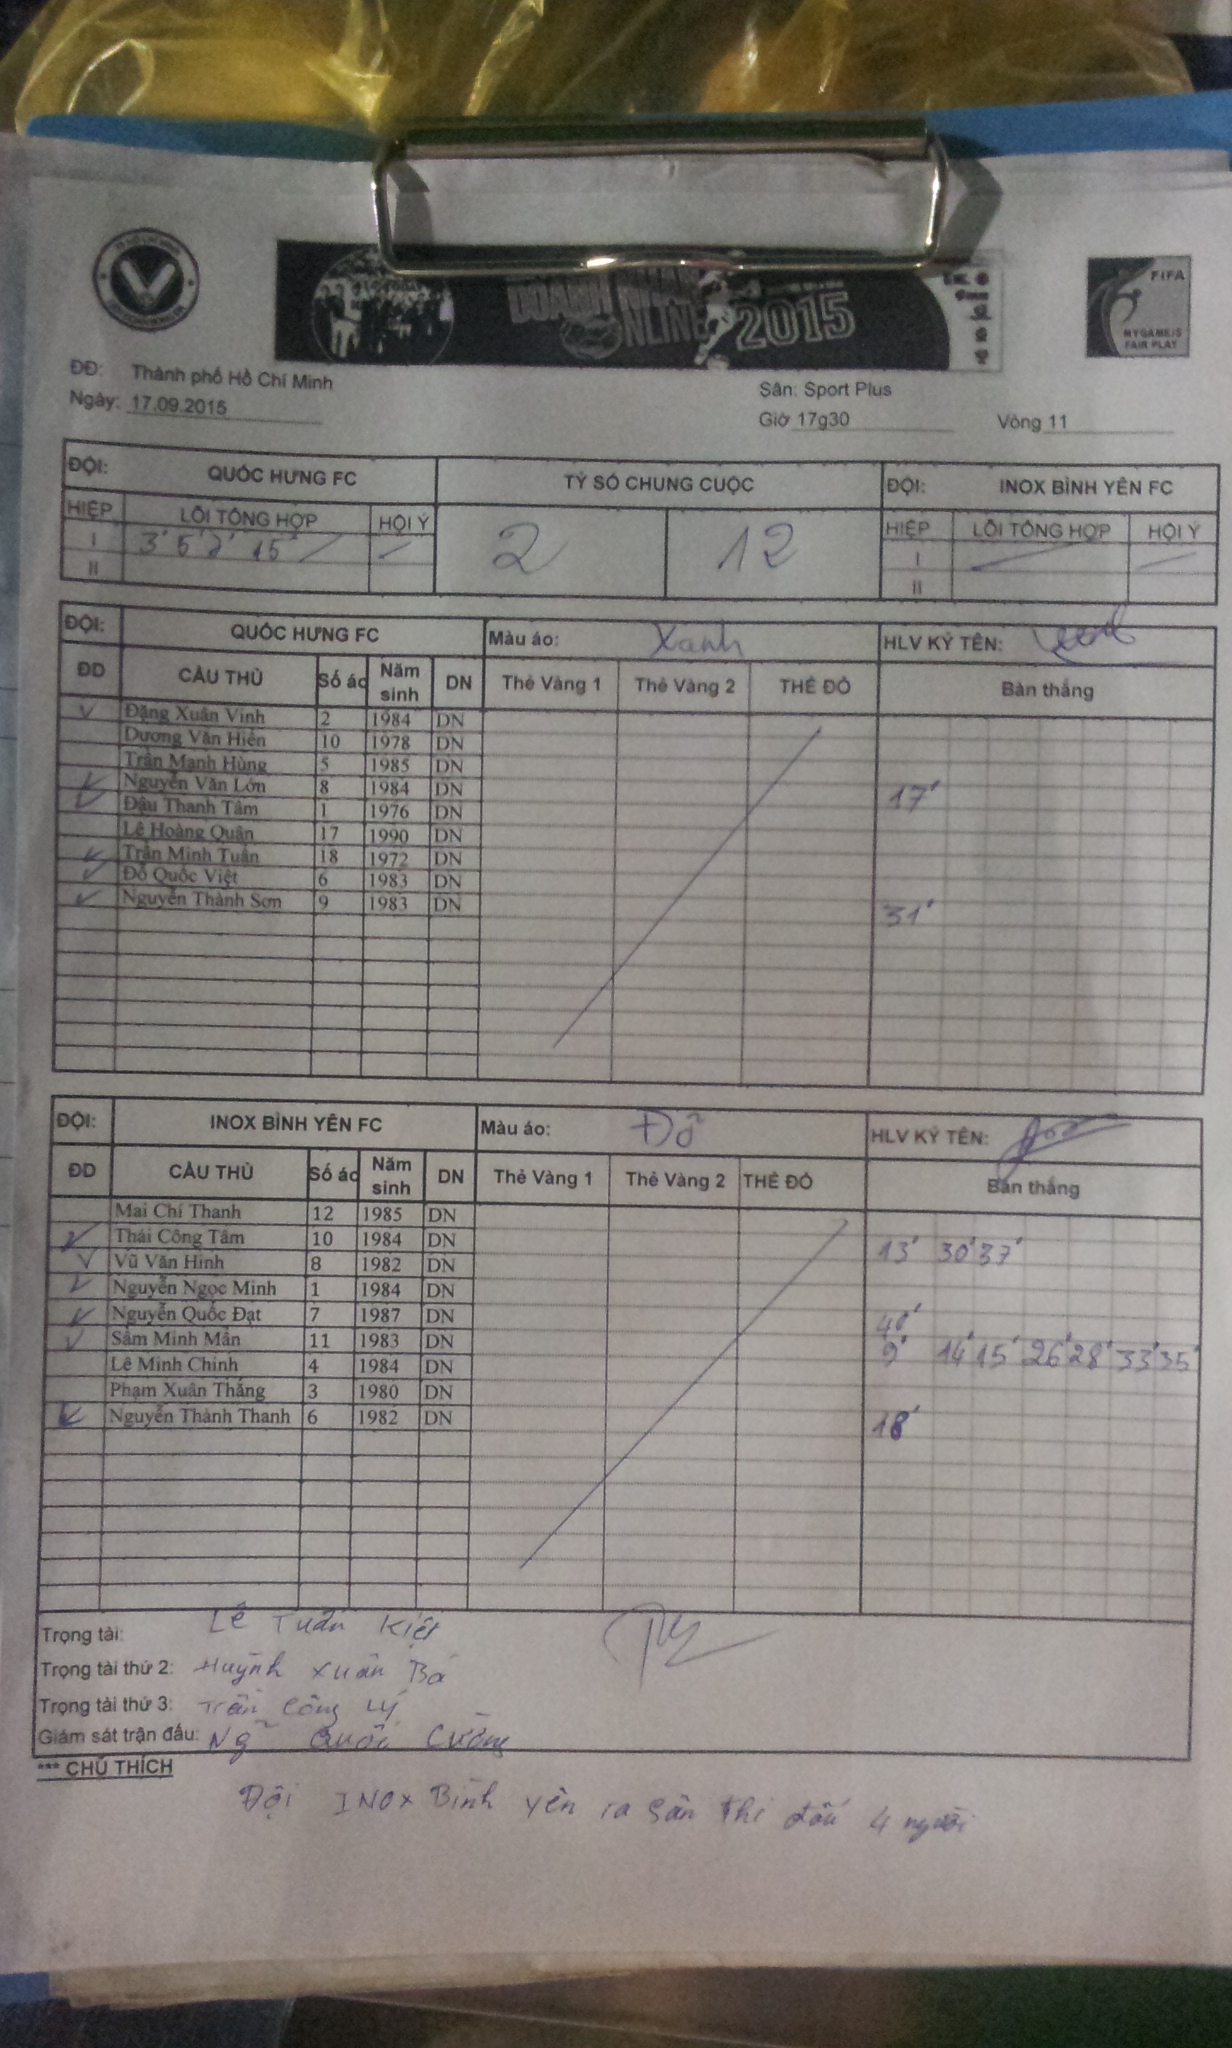 DOANH NHÂN
ONLINE 2015
FIFA
MY GAME IS
FAIR PLAY
ĐĐ: Thành phố Hồ Chí Minh
Sân: Sport Plus
Ngày: 17.09.2015
Giờ 17g30 Vòng 11
ĐỘI: QUỐC HƯNG FC TỶ SỐ CHUNG CUỘC ĐỘI: INOX BÌNH YÊN FC
HIỆP LỖI TỔNG HỢP HỘI Ý 2 12 HIỆP LỖI TỔNG HỢP HỘI Ý
I 3' 5' 15' I
II II
ĐỘI: QUỐC HƯNG FC Màu áo: Xanh HLV KÝ TÊN:
ĐD CẦU THỦ Số áo Năm sinh DN Thẻ Vàng 1 Thẻ Vàng 2 THẺ ĐỎ Bàn thắng
Đặng Xuân Vinh 2 1984 DN
Dương Văn Hiền 10 1978 DN
Trần Mạnh Hùng 5 1985 DN
Nguyễn Văn Lớn 8 1984 DN 17'
Đậu Thanh Tâm 1 1976 DN
Lê Hoàng Quân 17 1990 DN
Trần Minh Tuấn 18 1972 DN
Đỗ Quốc Việt 6 1983 DN
Nguyễn Thành Sơn 9 1983 DN 31'
ĐỘI: INOX BÌNH YÊN FC Màu áo: Đỏ HLV KÝ TÊN:
ĐD CẦU THỦ Số áo Năm sinh DN Thẻ Vàng 1 Thẻ Vàng 2 THẺ ĐỎ Bàn thắng
Mai Chí Thanh 12 1985 DN
Thái Công Tâm 10 1984 DN 13' 30' 37'
Vũ Văn Hinh 8 1982 DN
Nguyễn Ngọc Minh 1 1984 DN
Nguyễn Quốc Đạt 7 1987 DN 40'
Sầm Minh Mẫn 11 1983 DN 9' 14' 15' 26' 28' 33' 35'
Lê Minh Chinh 4 1984 DN
Phạm Xuân Thắng 3 1980 DN
Nguyễn Thành Thanh 6 1982 DN 18'
Trọng tài: Lê Tuấn Kiệt
Trọng tài thứ 2: Huỳnh Xuân Bá
Trọng tài thứ 3: Trần Công Lý
Giám sát trận đấu: Ng~ Quốc Cường
*** CHÚ THÍCH
Đội INOX Bình Yên ra sân thi đấu 4 người